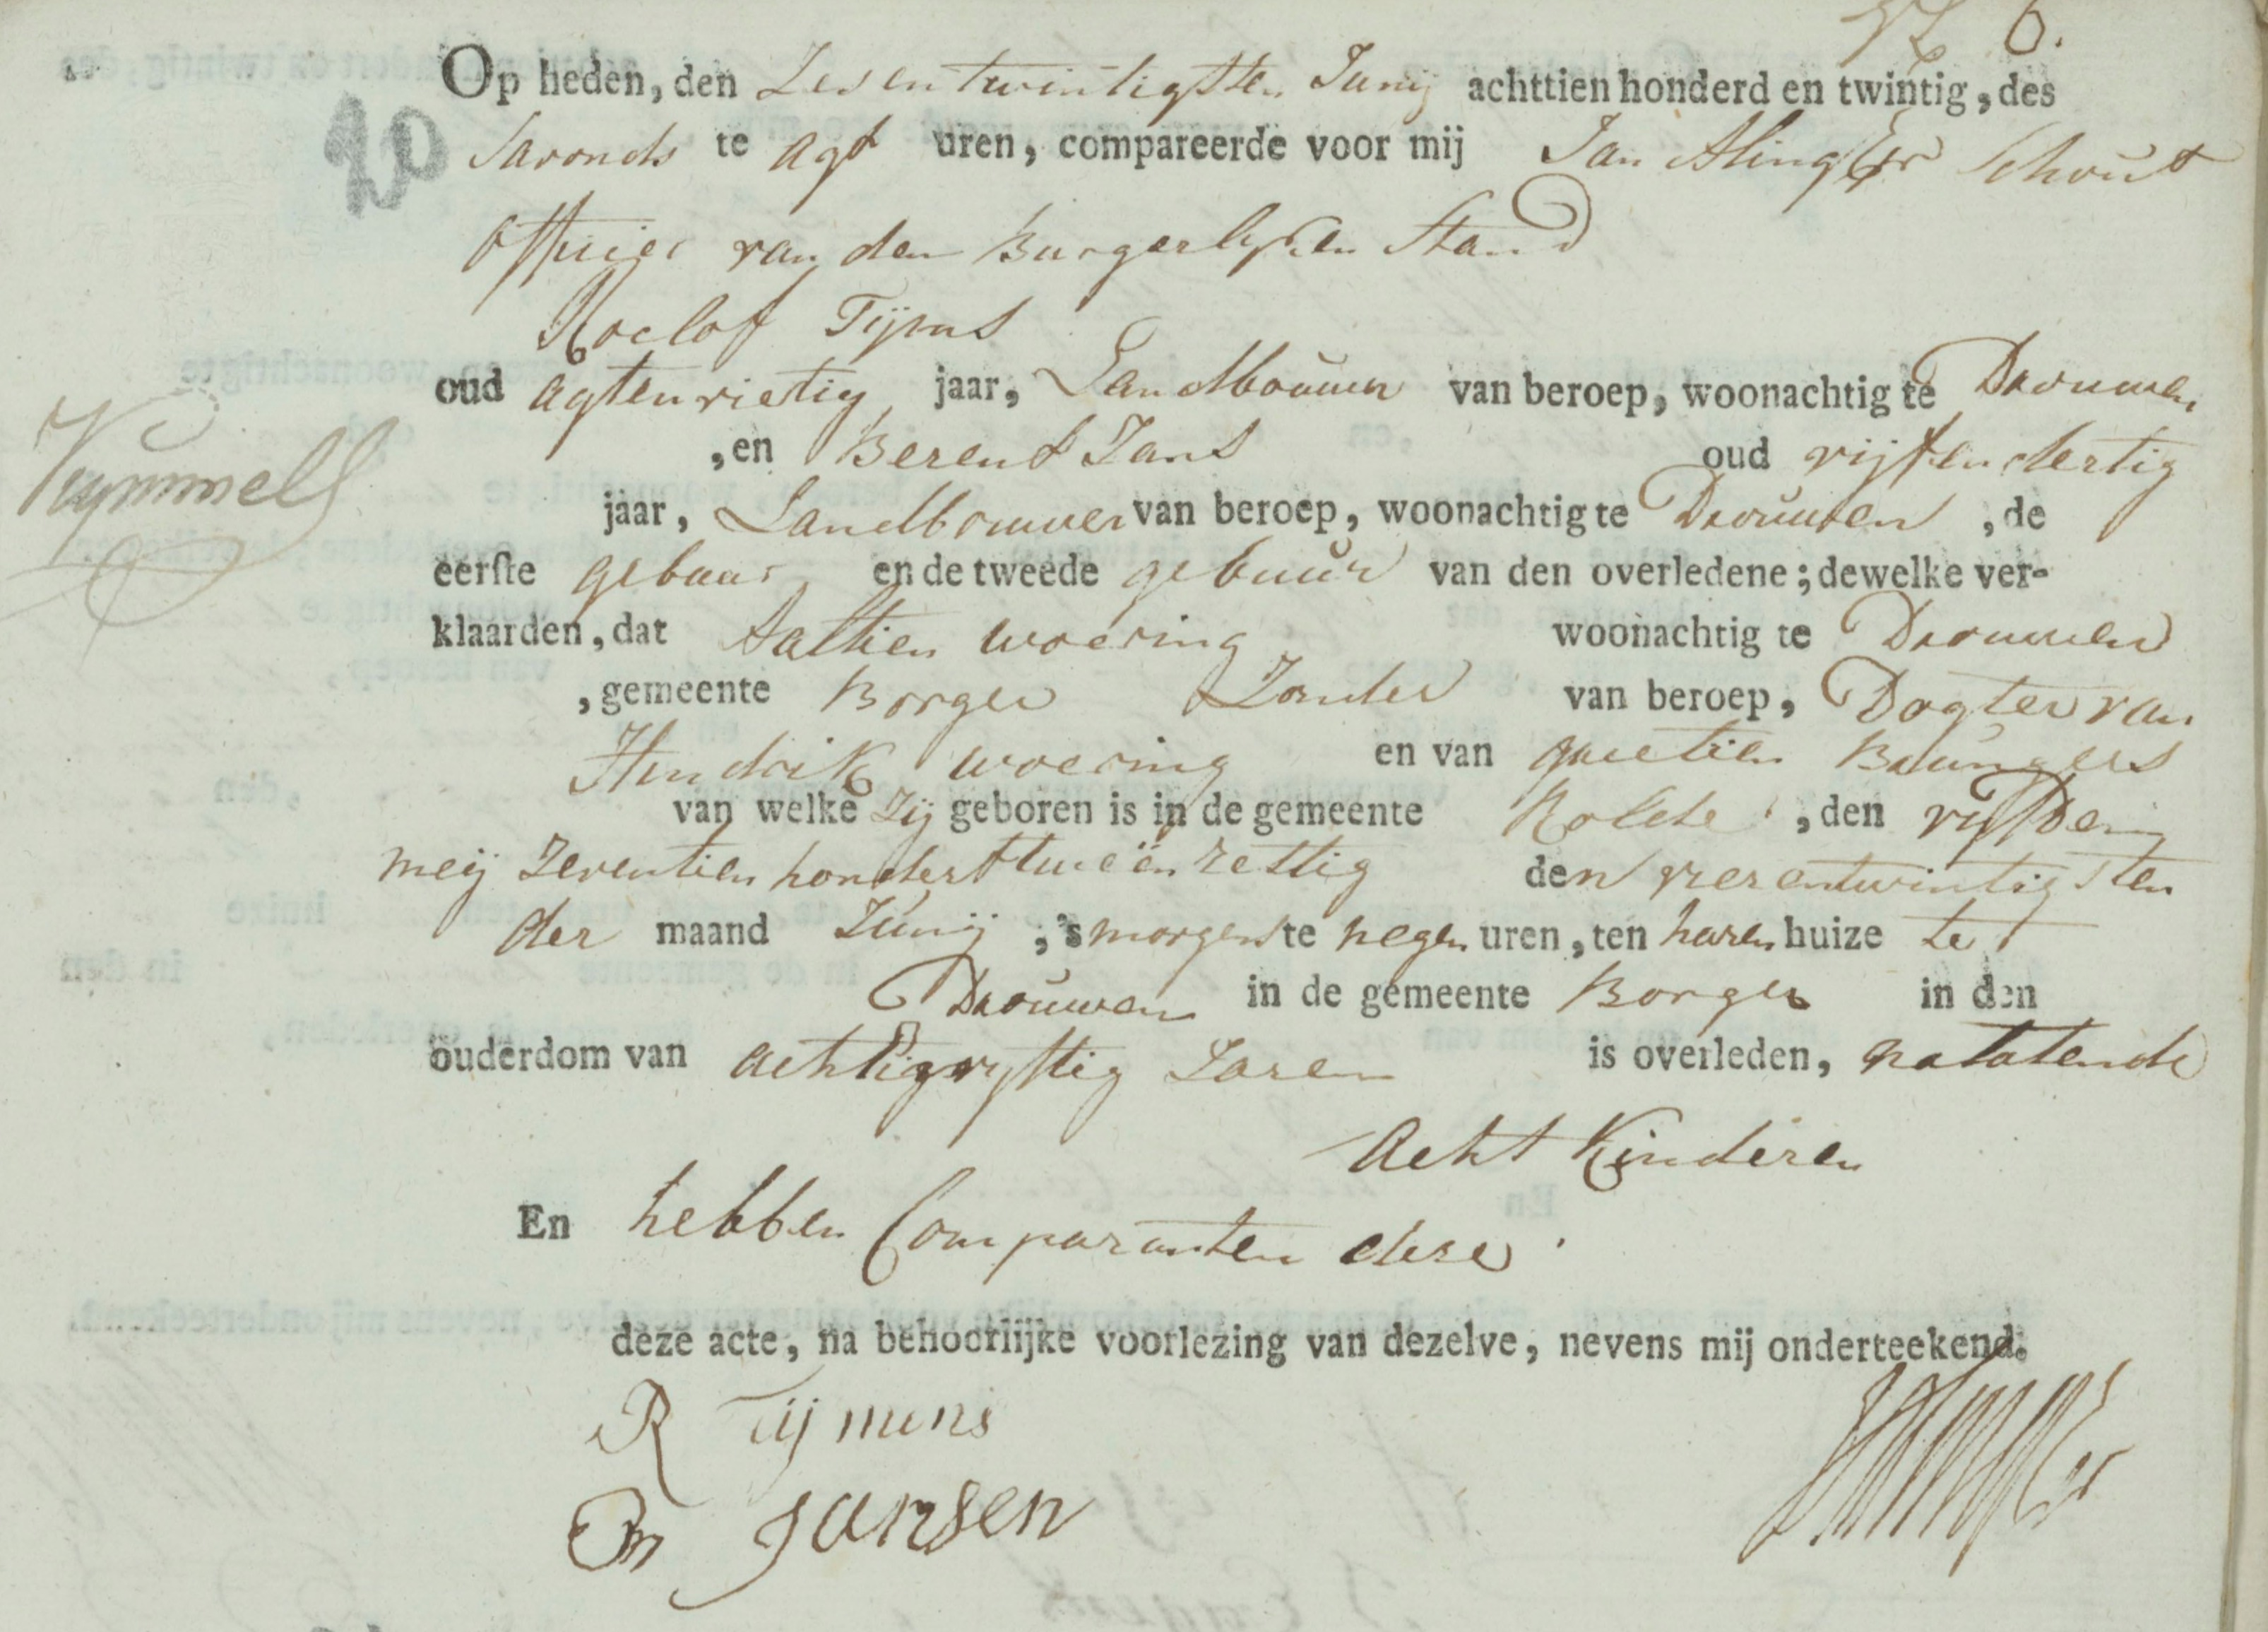 N 6.
Op heden, den Zesentwintigsten Junij achttien honderd en twintig, des
Savonds te agt uren, compareerde voor mij Jan Alingh Schout
Officier van den Burgerlyken Stand
Roelof Tijms
oud agtenvietig jaar, Landbouwer van beroep, woonachtig te Drouwen
, en Berent Jans oud vijfendertig
jaar, Landbouwer van beroep, woonachtig te Drouwen , de
eerste gebuur en de tweede gebuur van den overledene; dewelke ver-
klaarden, dat Aaltien woering woonachtig te Drouwen
, gemeente Borger Zonder van beroep, Dogter van
Hendrik woering en van Braungers
van welke Zij geboren is in de gemeente Rolde , den vyfden
meij Zeventien hondert tweeën zestig den vierentwintigsten
der maand Junij , 's morgens te negen uren, ten haren huize te
Drouwen in de gemeente Borger in den
ouderdom van achtigvyftig Jaren is overleden, nalatende
Acht Kinderen
En hebben Comparanten dese
deze acte, na behoorlijke voorlezing van dezelve, nevens mij onderteekend.
R Tijmens
B Jansen
20
Kymmell